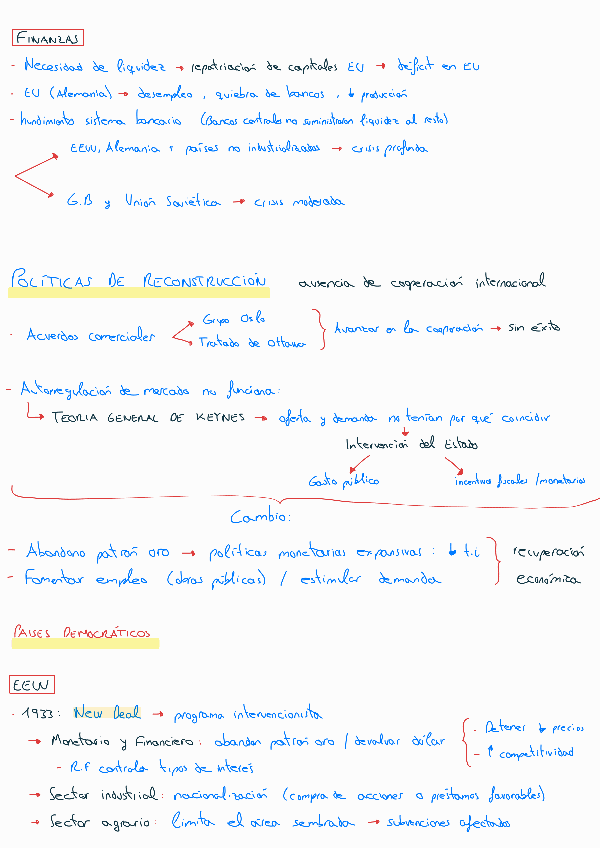 FINANZAS
- Necesidad de liquidez → repatriación de capitales EU → déficit en EU
- EU (Alemania) → desempleo, quiebra de bancos, ↓ producción
- hundimiento sistema bancario (Bancos centrales no suministraron liquidez al resto)
EEUU, Alemania + países no industrializados → crisis profunda
G.B y Unión Soviética → crisis moderada
POLÍTICAS DE RECONSTRUCCIÓN ausencia de cooperación internacional
Grupo Oslo
- Acuerdos comerciales Avanzar en la cooperación → sin éxito
Tratado de Ottawa
- Autorregulación de mercado no funciona:
→ TEORIA GENERAL DE KEYNES → oferta y demanda no tenían por qué coincidir
Intervención del Estado
Gasto público incentivos fiscales /monetarios
Cambio:
- Abandono patrón oro → políticas monetarias expansivas: ↓ t.i recuperación
- Fomentar empleo (obras públicas) / estimular demanda económica
PAISES DEMOCRÁTICOS
EEUU
- 1933: New Deal → programa intervencionista
- Detener ↓ precios
→ Monetario y Financiero: abandon patrón oro / devaluar dólar
- ↑ competitividad
- R.F controla tipos de interés
→ Sector industrial: nacionalización (compra de acciones o préstamos favorables)
→ Sector agrario: limita el área sembrada → subvenciones afectados